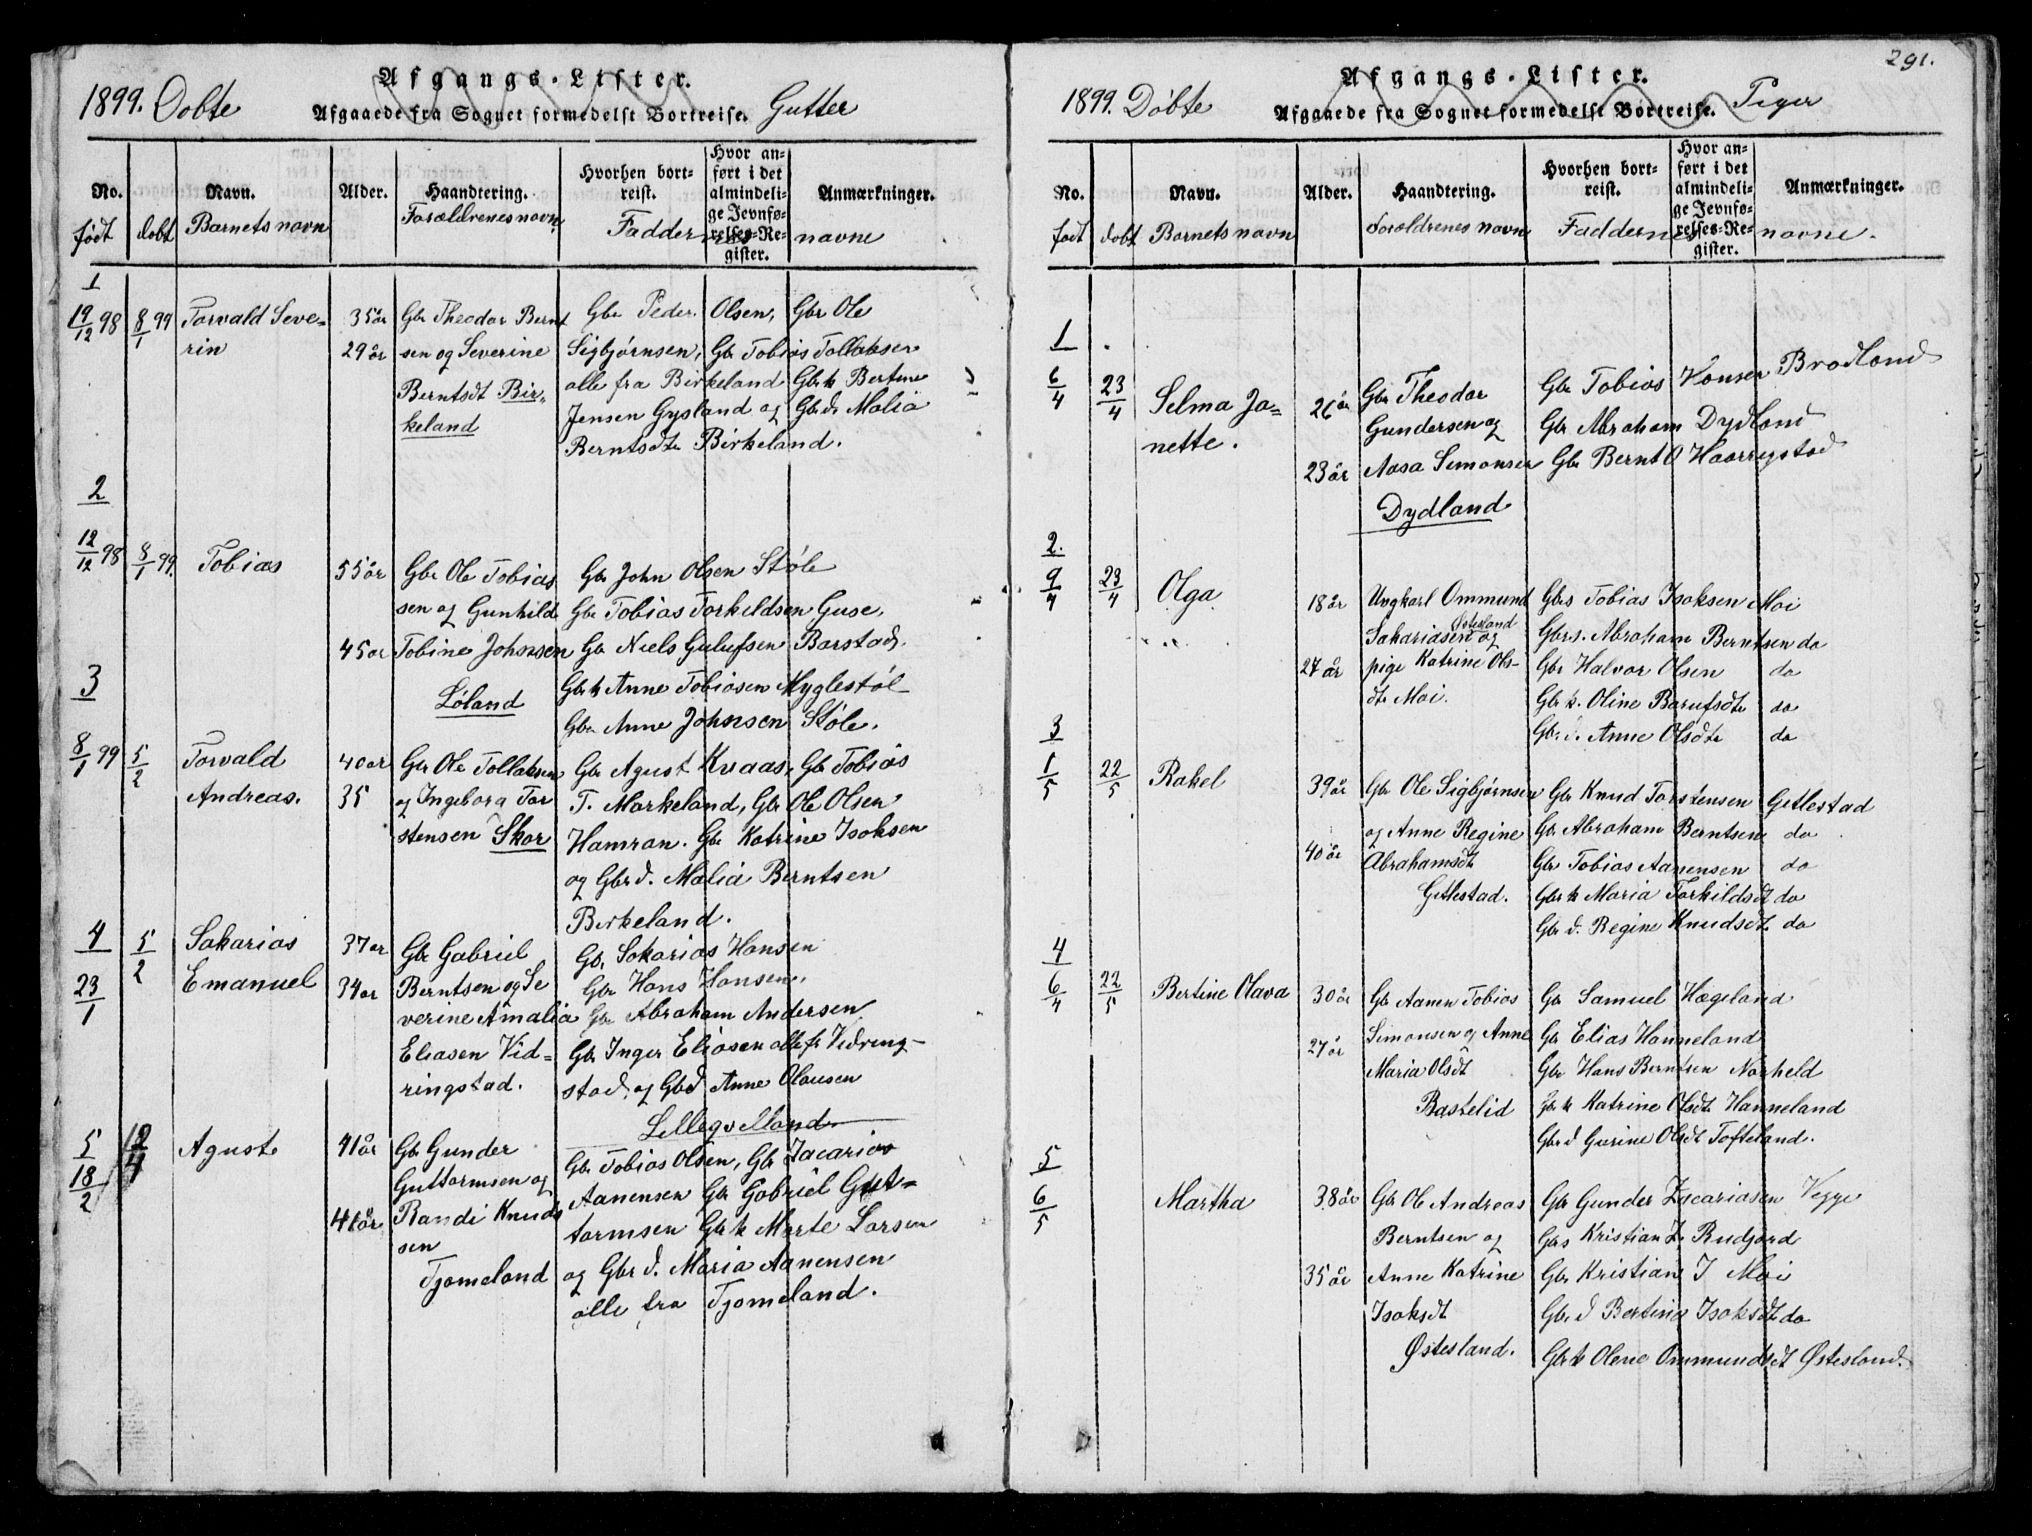 Afgangs-Lister.
1899. Döbte Afgaaede fra Sognet formedelst Bortreise. Gutter
No. Navn. Alder. Haandtering. Hvorhen bort-reist. Hvor an-ført i det almindeli-ge Jevnfø-relses-Re-gister. Anmærkninger.
født dobt Barnets navn Forældrenes navn Faddernes navne
1
19/12 98 8/1 99 Torvald Seve- 35 år Gbr Theodor Bernt Gbr Peder Olsen, Gbr Ole
rin 29 år sen og Severine Sigbjørnsen, Gbr Tobias Tollaksen
Berntsdt Bir- alle fra Birkeland Gbr k Bertine
keland Jensen Gysland og Gbr d. Malia
Berntsdtr Birkeland.
2
12/12 98 8/1 99. Tobias 55 år Gbr Ole Tobias Gbr John Olsen Støle
sen og Gunhild Gbr Tobias Torkeldsen Guse,
45 år Tobine Johnsen Gbr Niels Gulufsen Barstad.
Løland Gbr k Anne Tobiasen Myglestøl
Gbr Anne Johnsen Støle.
3
8/1 99 5/2 Torvald 40 ar Gbr Ole Tollaksen Gbr Agust Kvaas, Gbr Tobias
Andreas. 35 og Ingeborg Tor T. Markeland, Gbr Ole Olsen
stensen Skor Hamran. Gbr Katrine Isaksen
og Gbr d. Malia Berntsen
Birkeland.
4 5/2 Sakarias 37 ar Gbr Gabriel Gbr Sakarias Hansen
23/1 Emanuel 34 ar Berntsen og Se Gbr Hans Hansen,
verine Amalia Gbr Abraham Andersen
Eliasen Vid- Gbr Inger Eliasen alle fr Vidring-
ringstad. stad, og Gbd Anne Olausen
Lilleqvelland
5 12/4 Agust 41 år Gbr Gunder Gbr Tobias Olsen, Gbr Zacarias
18/2 Guttormsen og Aanensen Gbr Gabriel Gut-
41 år Randi Knud tormsen Gbr k Marte Larsen
sen og Gbr d. Maria Aanensen
Tjomeland alle fra Tjomeland.
291.
Afgangs-Lister.
1899. Döbte Afgaaede fra Sognet formedelst Bortreise. Piger
No. Navn. Alder. Haandtering. Hvorhen bort-reist. Hvor an-ført i det almindeli-ge Jevnfø-relses-Re-gister. Anmærkninger.
født dobt Barnets navn Forældrenes navn Faddernes navne.
1
6/4 23/4 Selma Ja- 26 år Gbr Theodor Gbr Tobias Hansen Brodland
nette. Gundersen og Gbr Abraham Dydland
23 år Aasa Simonsen Gbr Bernt O Haarrigstad
Dydland
2.
9/4 23/4 Olga 18 år Ungkarl Ommund Gbrs Tobias Isaksen Moi
Sakariasen Østesland og Gbrs. Abraham Berntsen do
27 år pige Katrine Ols- Gbr Halvor Olsen do
dtr Moi. Gbr k. Oline Barufsdtr do
Gbr d. Anne Olsdtr do
3
1/5 22/5 Rakel 39 år Gbr Ole Sigbjørnsen Gbr Knud Torstensen Getlestad
og Anne Regine Gbr Abraham Berntsen do
40 år Abrahamsdt Gbr Tobias Aanensen do
Getlestad. Gbr k Maria Torkildsdt do
Gbr d. Regine Knudsdt do
4
6/4 22/5 Bertine Olava 30 år Gbr Aanen Tobias Gbr Samuel Hægeland
27 år Simonsen og Anne Gbr Elias Hanneland
Maria Olsdt Gbr Hans Berntsen Norheld
Bastelid Gbr k Katrine Olsdt Hanneland
Gbr d Gurine Olsdt Tofteland.
5
6/5 Martha 38 år Gbr Ole Andreas Gbr Gunder Zacariasen Vegge
Berntsen og Gbrs Kristian Z. Rudjord
35 år Anne Katrine Gbr Kristian I Moi
Isaksdt Gbr d Bertine Isaksdt do
Østesland. Gbr k Olene Ommundsdt Østesland.